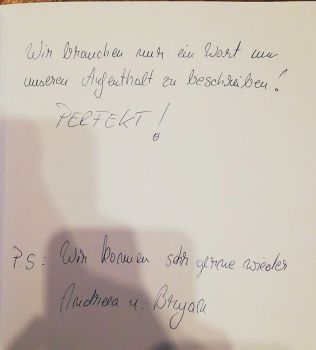 Wir brauchen nur ein Wort um
unseren Aufenthalt zu beschreiben!
PERFEKT!
P.S: Wir kommen sehr gerne wieder
Andreea u. Bryan